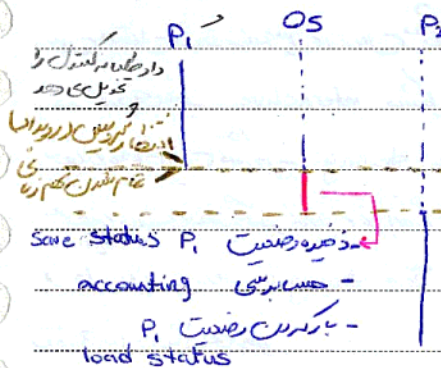 P₁ OS P₂
داوطلبانه کنترل را
تحویل می دهد
انتظار سرویس از رویدادها
تمام شدن سهم زمانی
save status P₁ ذخیره وضعیت -
accounting حسابرسی -
P₁ بارکردن وضعیت -
load status